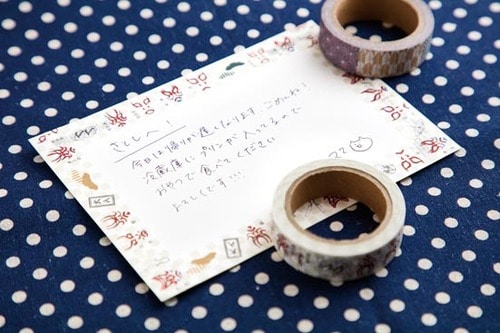 さとしへ!
今日は帰りが遅くなります ごめんね!
冷蔵庫にプリンが入ってるので
おやつで食べてください
よろしくです…
ママ